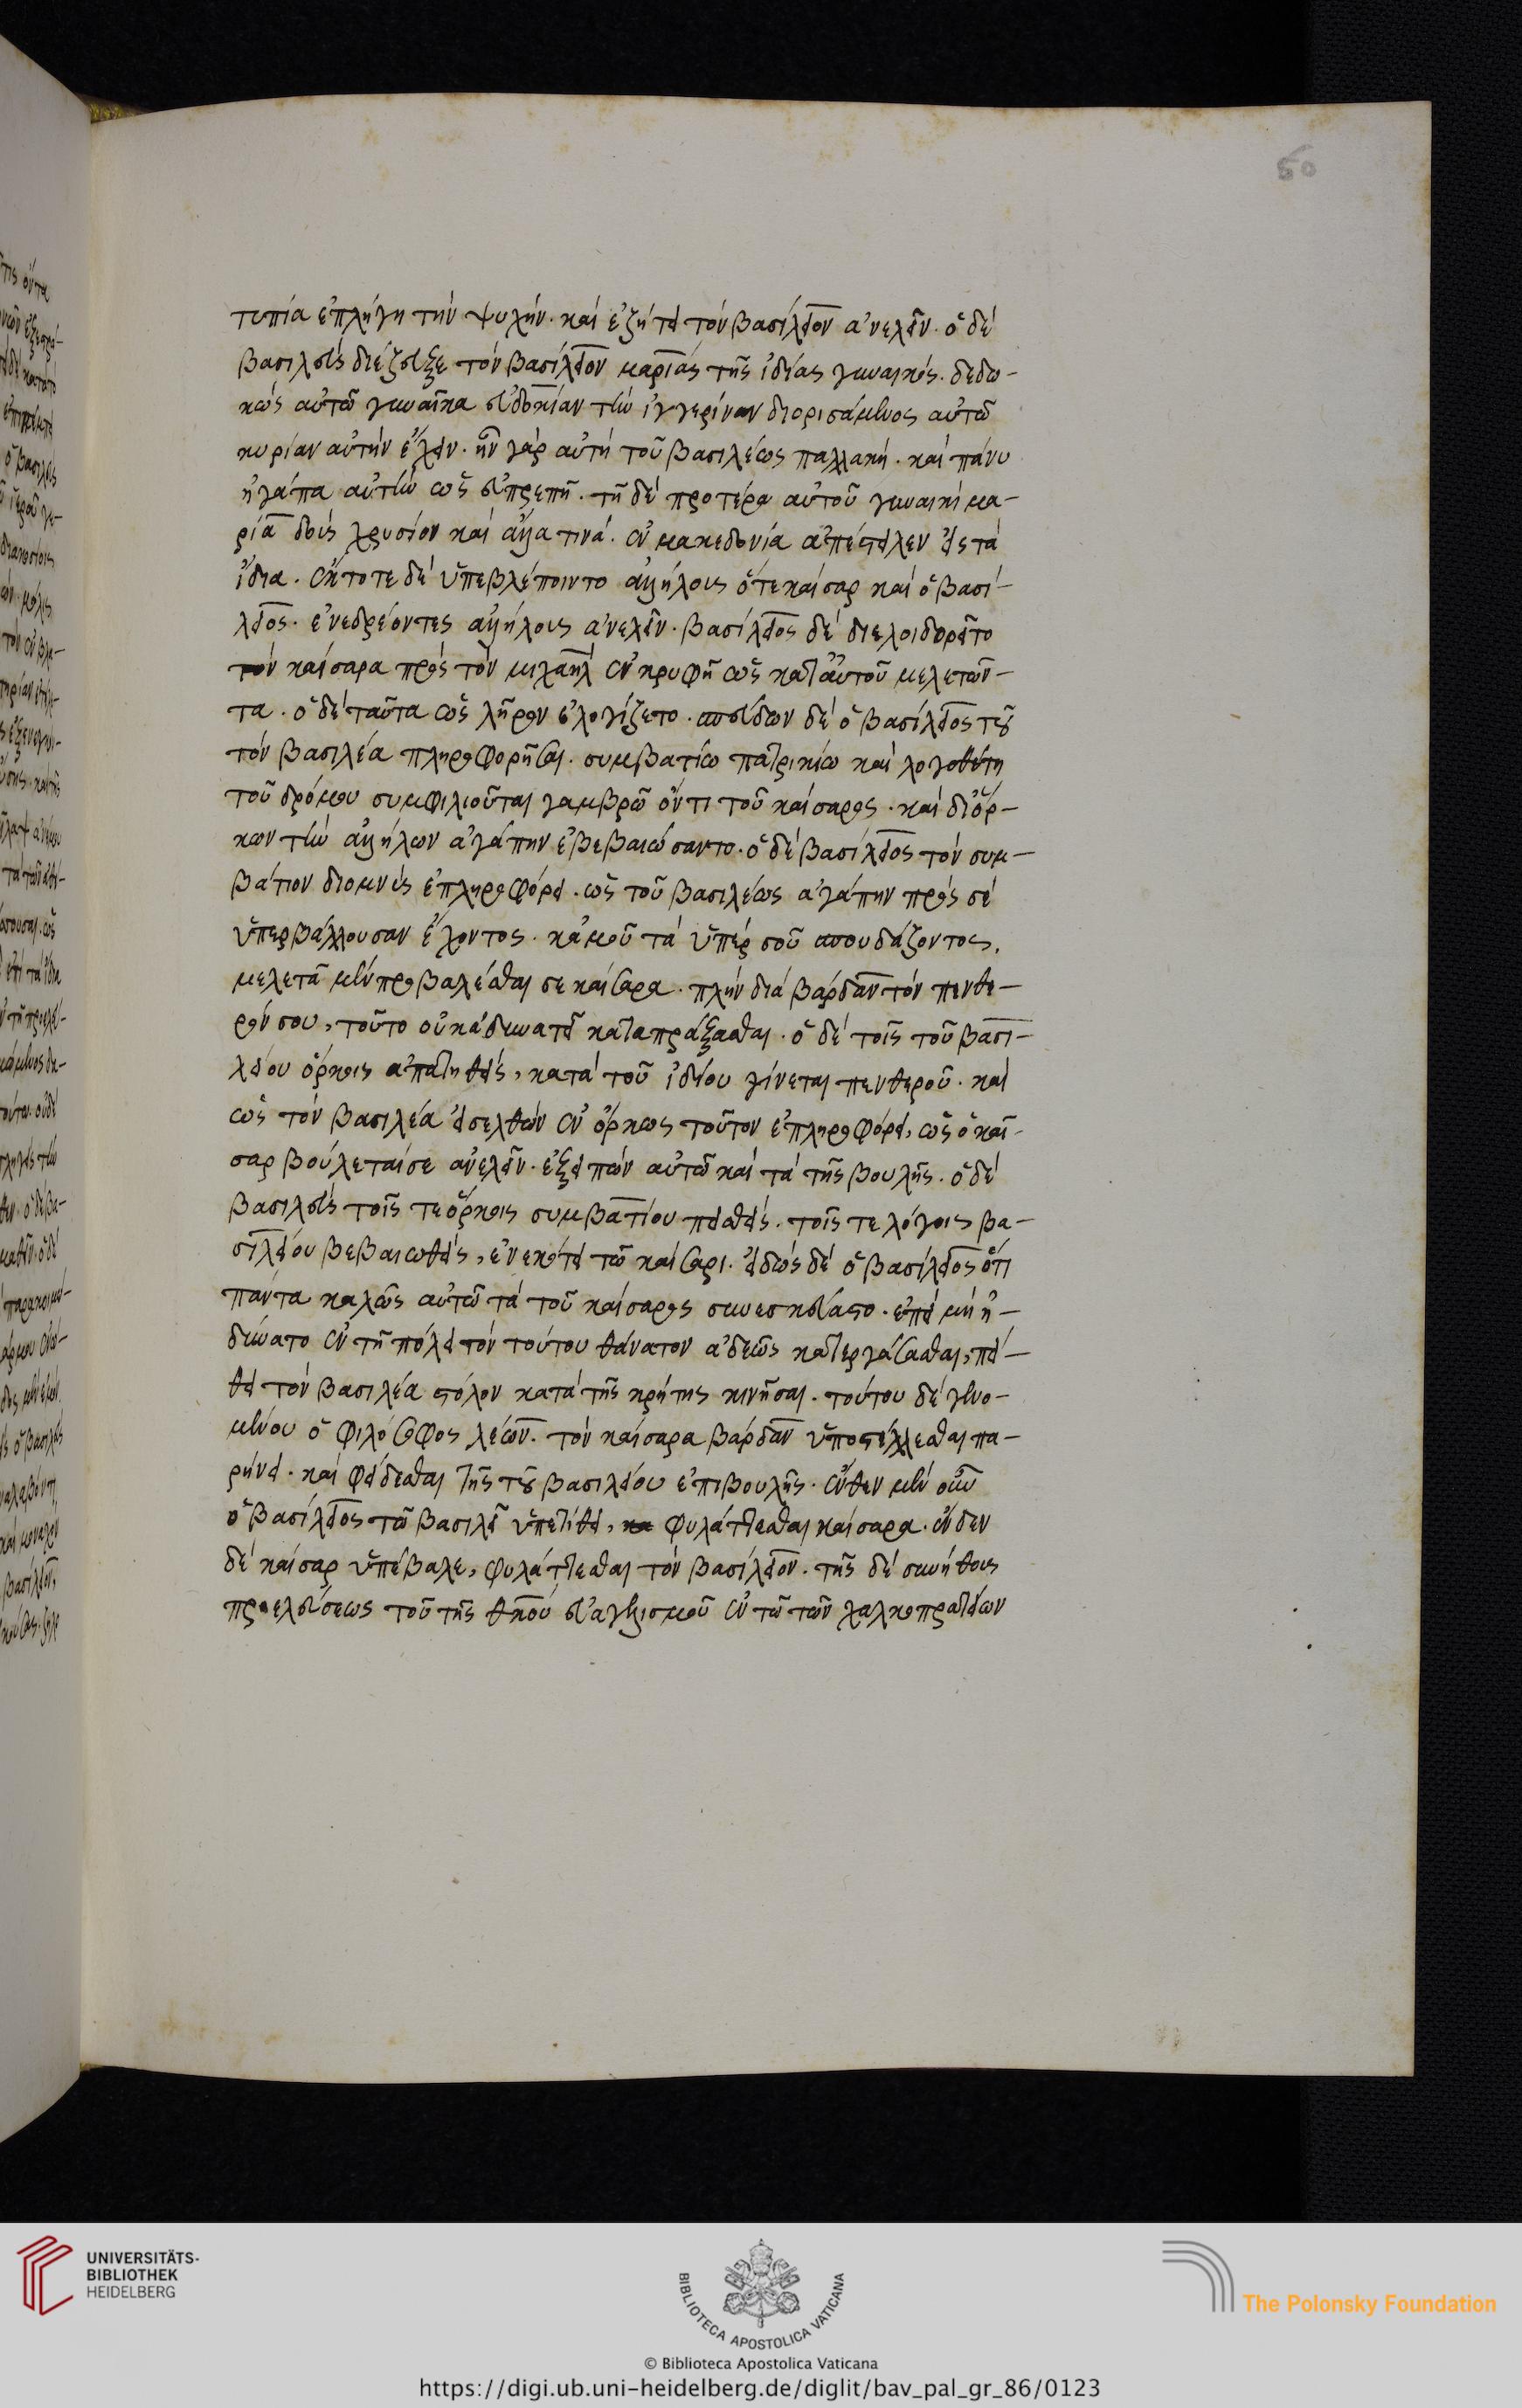 60
τυπία ἐπλήγη τὴν ψυχήν· καὶ ἐζήτει τὸν βασίλειον ἀνελεῖν· ὁ δὲ
βασιλεὺς διέζευξε τὸν βασίλειον μαρίας τῆς ἰδίας γυναικός. δεδω-
κὼς αὐτῶ γυναῖκα εὐδοκίαν τὴν ἰγγερίναν διορισάμενος αὐτῶ
κυρίαν αὐτὴν ἔχειν· ἦν γὰρ αὐτὴ τοῦ βασιλέως παλλακή· καὶ πάνυ
ἠγάπα αὐτὴν ὡς εὐπρεπῆ. τῆ δὲ προτέρα αὐτοῦ γυναικὶ μα-
ρία δοὺς χρυσίον καὶ ἄλλα τινά. ἐν μακεδονία ἀπέστειλεν εἰς τὰ
ἴδια. ἔκτοτε δὲ ὑπεβλέποιντο ἀλλήλους ὅτε καίσαρ καὶ ὁ βασί-
λειος· ἐνεδρέοντες ἀλλήλους ἀνελεῖν· βασίλειος δὲ διελοιδορεῖτο
τὸν καίσαρα πρὸς τὸν μιχαὴλ ἐν κρυφῆ ὡς κατ᾽ αὐτοῦ μελετῶν-
τα. ὁ δὲ ταῦτα ὡς λῆρον ἐλογίζετο. σπεύδων δὲ ὁ βασίλειος τοῦ
τὸν βασιλέα πληροφορῆσαι· συμβατίω πατρικίω καὶ λογοθέτη
τοῦ δρόμου συμφιλιοῦται γαμβρῶ ὄντι τοῦ καίσαρος· καὶ δι᾽ ὅρ-
κων τὴν ἀλλήλων ἀγάπην ἐβεβαιώσαντο· ὁ δὲ βασίλειος τὸν συμ-
βάτιον διομνὺς ἐπληροφόρει. ὡς τοῦ βασιλέως ἀγάπην πρὸς σὲ
ὑπερβάλλουσαν ἔχοντος· κἀμοῦ τὰ ὑπὲρ σοῦ σπουδάζοντος,
μελετᾶ μὲν προβαλέσθαι σε καίσαρα· πλὴν διὰ βάρδαν τὸν πενθε-
ρόν σου, τοῦτο οὐκ ἀδυνατεῖ καταπράξασθαι. ὁ δὲ τοῖς τοῦ βασι-
λείου ὅρκοις ἀπατηθεὶς, κατὰ τοῦ ἰδίου γίνεται πενθεροῦ· καὶ
ὡς τὸν βασιλέα εἰσελθὼν ἐν ὅρκως τοῦτον ἐπληροφόρει, ὡς ὁ καῖ-
σαρ βούλεταί σε ἀνελεῖν· ἐξειπὼν αὐτῶ καὶ τὰ τῆς βουλῆς. ὁ δὲ
βασιλεὺς τοῖς τε ὅρκοις συμβατίου πεισθεὶς. τοῖς τε λόγοις βα-
σιλείου βεβαιωθεὶς, ἐνεκότει τῶ καίσαρι. εἰδὼς δὲ ὁ βασίλειος ὅτι
πάντα καλῶς αὐτῶ τὰ τοῦ καίσαρος συνεσκεύαστο· ἐπεὶ μὴ ἠ-
δύνατο ἐν τῆ πόλει τὸν τούτου θάνατον ἀδεῶς κατεργάσασθαι, πεί-
θει τὸν βασιλέα στόλον κατὰ τῆς κρήτης κινῆσαι. τούτου δὲ γενο-
μένου ὁ φιλόσοφος λέων. τὸν καίσαρα βάρδαν ὑποστέλλεσθαι πα-
ρήνει. καὶ φείδεσθαι τῆς τοῦ βασιλείου ἐπιβουλῆς· ἔνθεν μὲν οὖν
ὁ βασίλειος τῶ βασιλεῖ ὑπετίθει, κα φυλάττεσθαι καίσαρα. ἔνθεν
δὲ καίσαρ ὑπέβαλε, φυλάττεσθαι τὸν βασίλειον. τῆς δὲ συνήθους
προελεύσεως τοῦ τῆς θκου εὐαγγελισμοῦ ἐν τῶ τῶν χαλκοπρατείων
UNIVERSITÄTS-
BIBLIOTHEK
HEIDELBERG
BIBLIOTECA APOSTOLICA VATICANA
The Polonsky Foundation
© Biblioteca Apostolica Vaticana
https://digi.ub.uni-heidelberg.de/diglit/bav_pal_gr_86/0123